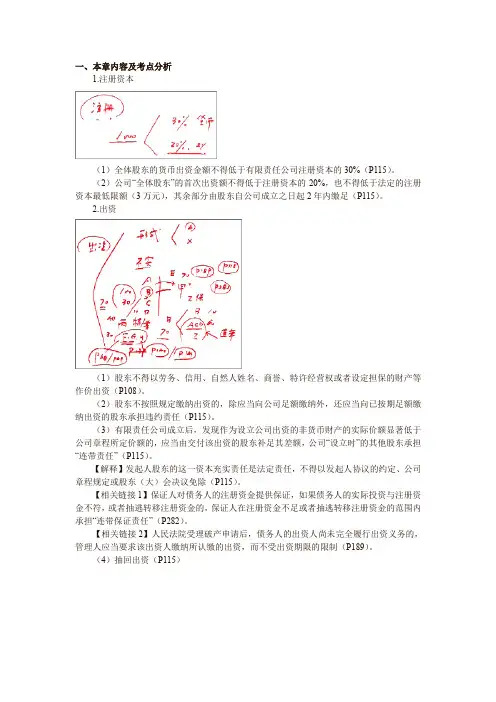 一、本章内容及考点分析
1.注册资本
注册
1000
30% 货币
20%. 2年
（1）全体股东的货币出资金额不得低于有限责任公司注册资本的 30%（P115）。
（2）公司“全体股东”的首次出资额不得低于注册资本的 20%，也不得低于法定的注
册资本最低限额（3 万元），其余部分由股东自公司成立之日起 2 年内缴足（P115）。
2.出资
形式
出资
不实
A
B
C
100
30
70
甲
P189
P282
乙保
70
连带
（1）股东不得以劳务、信用、自然人姓名、商誉、特许经营权或者设定担保的财产等
作价出资（P108）。
（2）股东不按照规定缴纳出资的，除应当向公司足额缴纳外，还应当向已按期足额缴
纳出资的股东承担违约责任（P115）。
（3）有限责任公司成立后，发现作为设立公司出资的非货币财产的实际价额显著低于
公司章程所定价额的，应当由交付该出资的股东补足其差额，公司“设立时”的其他股东承担
“连带责任”（P115）。
【解释】发起人股东的这一资本充实责任是法定责任，不得以发起人协议的约定、公司
章程规定或股东（大）会决议免除（P115）。
【相关链接 1】保证人对债务人的注册资金提供保证，如果债务人的实际投资与注册资
金不符，或者抽逃转移注册资金的，保证人在注册资金不足或者抽逃转移注册资金的范围内
承担“连带保证责任”（P282）。
【相关链接 2】人民法院受理破产申请后，债务人的出资人尚未完全履行出资义务的，
管理人应当要求该出资人缴纳所认缴的出资，而不受出资期限的限制（P189）。
（4）抽回出资（P115）